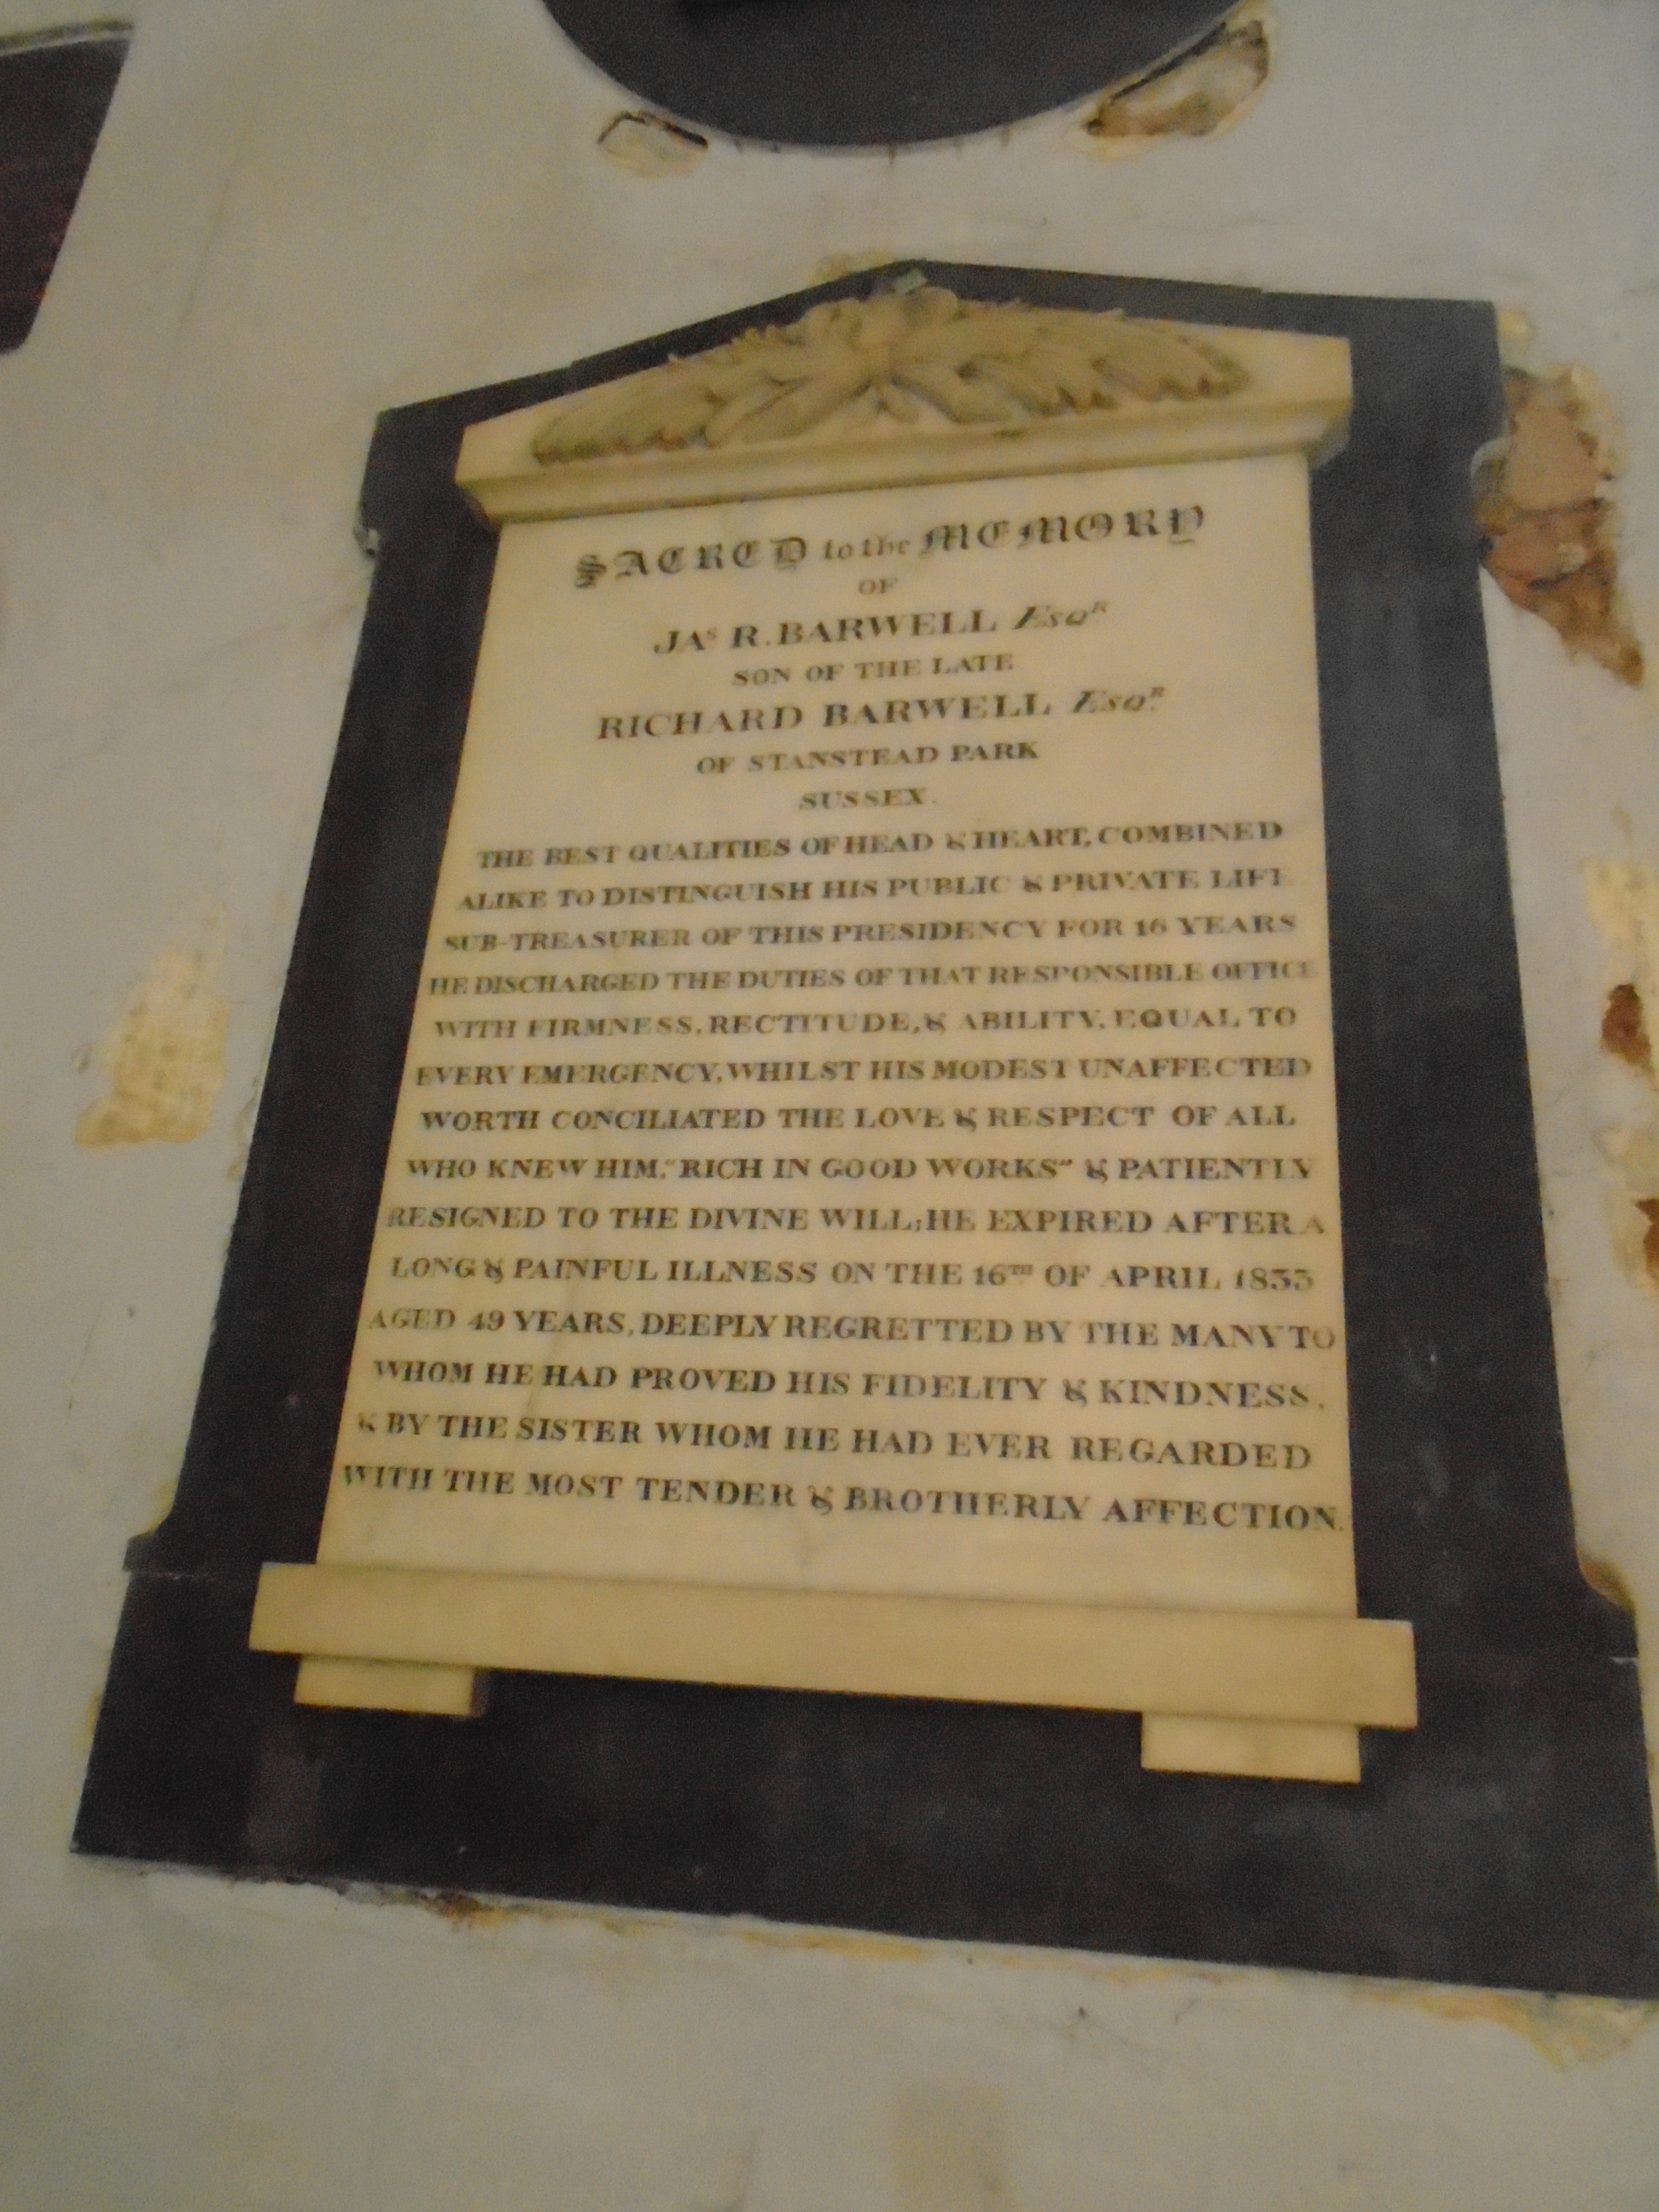 SACRED to the MEMORY
OF
JAS R. BARWELL EsqR
SON OF THE LATE
RICHARD BARWELL EsqR.
OF STANSTEAD PARK
SUSSEX.
THE BEST QUALITIES OF HEAD & HEART, COMBINED
ALIKE TO DISTINGUISH HIS PUBLIC & PRIVATE LIFE
SUB-TREASURER OF THIS PRESIDENCY FOR 16 YEARS
HE DISCHARGED THE DUTIES OF THAT RESPONSIBLE OFFICE
WITH FIRMNESS, RECTITUDE, & ABILITY, EQUAL TO
EVERY EMERGENCY, WHILST HIS MODEST UNAFFECTED
WORTH CONCILIATED THE LOVE & RESPECT OF ALL
WHO KNEW HIM, "RICH IN GOOD WORKS" & PATIENTLY
RESIGNED TO THE DIVINE WILL; HE EXPIRED AFTER A
LONG & PAINFUL ILLNESS ON THE 16TH OF APRIL 1833
AGED 49 YEARS, DEEPLY REGRETTED BY THE MANY TO
WHOM HE HAD PROVED HIS FIDELITY & KINDNESS,
& BY THE SISTER WHOM HE HAD EVER REGARDED
WITH THE MOST TENDER & BROTHERLY AFFECTION.